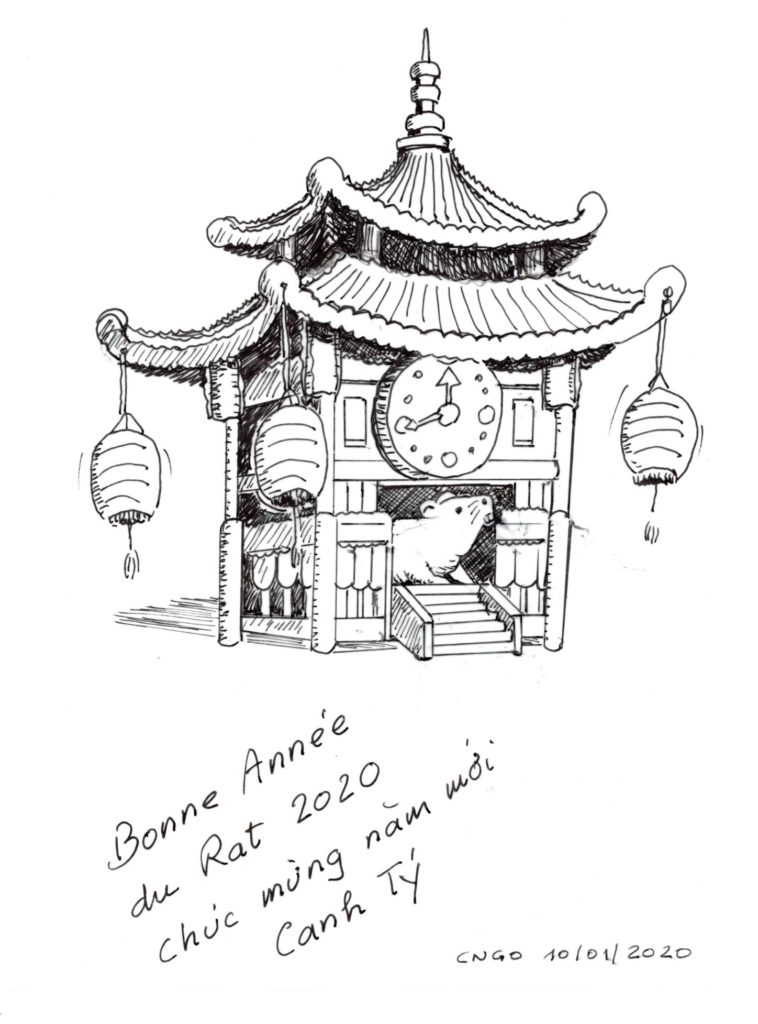 Bonne Année
du Rat 2020
chúc mừng năm mới
Canh Tý
CNGO 10/01/2020